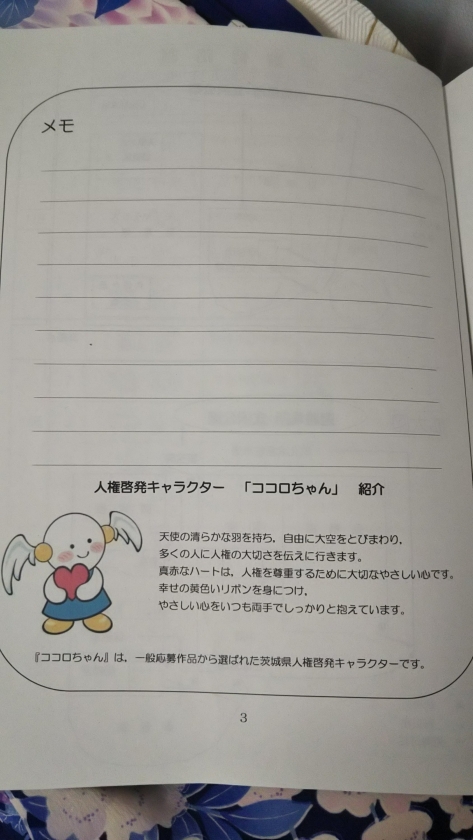 メモ
人権啓発キャラクター 「ココロちゃん」 紹介
天使の清らかな羽を持ち，自由に大空をとびまわり，
多くの人に人権の大切さを伝えに行きます。
真赤なハートは，人権を尊重するために大切なやさしい心です。
幸せの黄色いリボンを身につけ，
やさしい心をいつも両手でしっかりと抱えています。
『ココロちゃん』は，一般応募作品から選ばれた茨城県人権啓発キャラクターです。
3